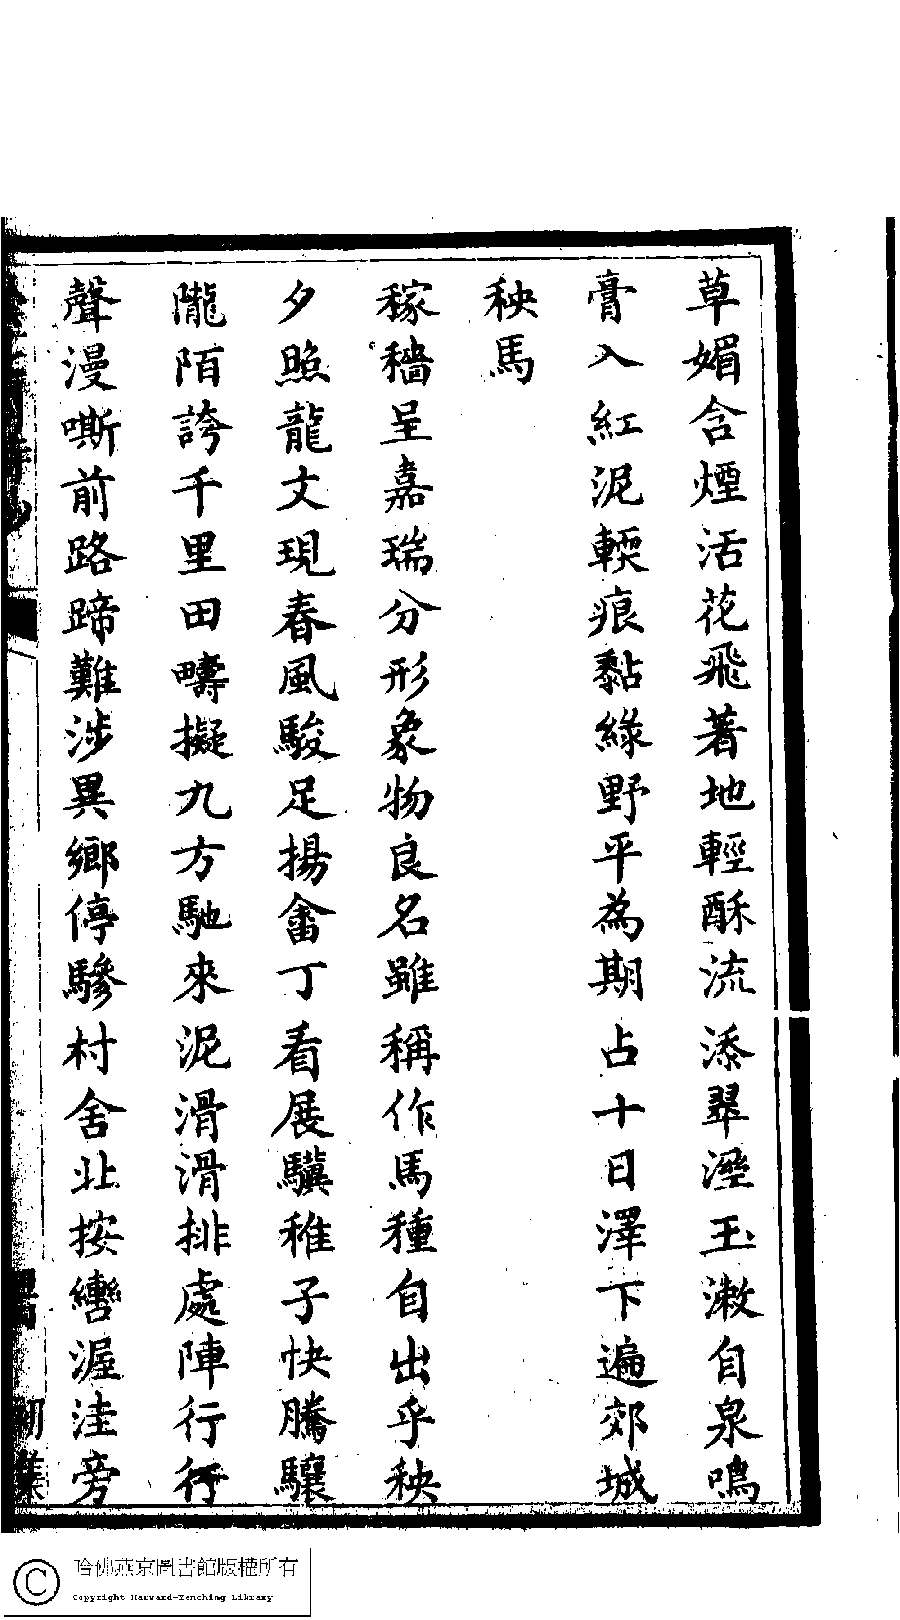 草媚含煙活花飛著地輕酥流添翠溼玉漱自泉鳴
膏入紅泥輭痕黏綠野平為期占十日澤下遍郊城
秧馬
稼穡呈嘉瑞分形象物良名雖稱作馬種自出乎秧
夕照龍文現春風駿足揚畬丁看展驥稚子快騰驤
隴陌誇千里田疇擬九方馳來泥滑滑排處陣行行
聲漫嘶前路蹄難涉異鄉停驂村舍北按轡渥洼旁
初集
哈佛燕京圖書館版權所有
Copyright Harvard-Yenching Library